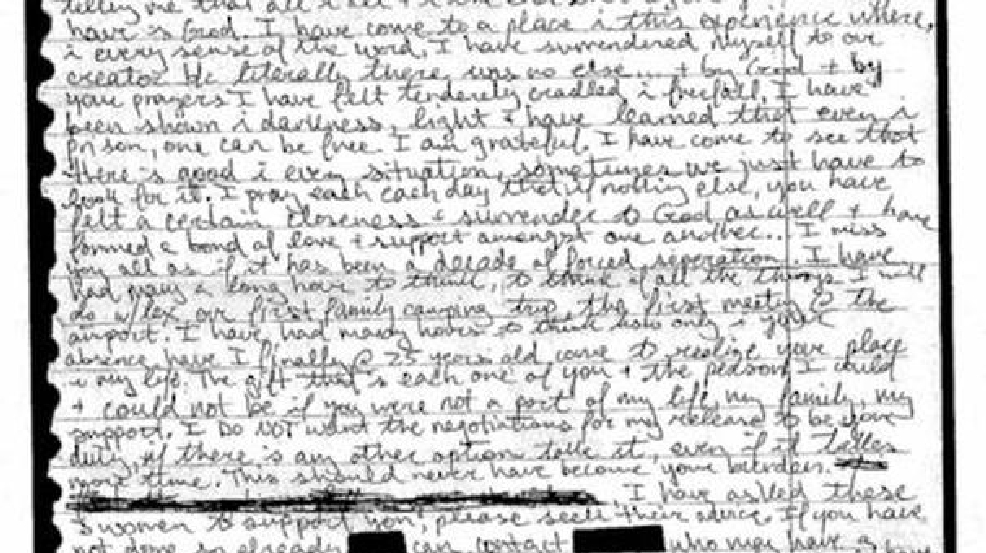 telling me that all
have is God. I have come to a place i this experience where,
i every sense of the word, I have surrendered myself to our
creator b/c literally there was no else... + by God + by
your prayers I have felt tenderly cradled i freefall. I have
been shown i darkness, light + have learned that even i
prison, one can be free. I am grateful. I have come to see that
there is good i every situation, sometimes we just have to
look for it. I pray each each day that if nothing else, you have
felt a certain closeness + surrender to God as well + have
formed a bond of love + support amongst one another... I miss
you all as if it has been a decade of forced seperation. I have
had many a long hour to think, to think of all the things I will
do w/Lex, our first family camping trip, the first meeting @ the
airport. I have had many hours to think how only i your
absence have I finally @ 25 years old come to realize your place
i my life. The gift that is each one of you + the person I could
+ could not be if you were not a part of my life, my family, my
support. I DO NOT want the negotiations for my release to be your
duty, if there is any other option take it, even if it takes
more time. This should never have become your burden.
I have asked these
women to support you; please seek their advice. If you have
not done so already can contact who may have a